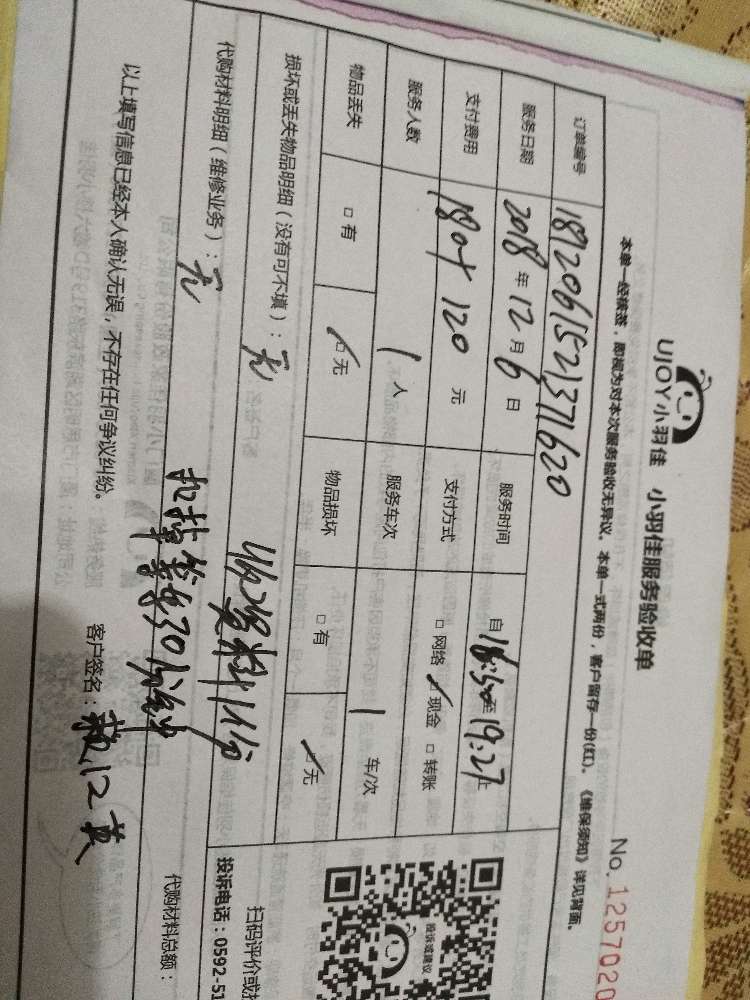 UJOY小羽佳 小羽佳服务验收单
No. 1257020
本单一经核签，即视为对本次服务验收无异议。本单一式两份，客户留存一份(红)。《维保须知》详见背面。
订单编号 1812061521371620
服务日期 2018年12月6日 服务时间 自18:50至19:27止
支付费用 120元 支付方式 □网络 ☑现金 □转账
服务人数 1人 服务车次 1车/次
物品丢失 □有 ☑无 物品损坏 □有 ☑无
损坏或丢失物品明细（没有可不填）：无
代购材料明细（维修业务）：无
代购材料总额：
以上填写信息已经本人确认无误，不存在任何争议纠纷。 客户签名：
投诉或建议
扫码评价或
投诉电话：0592-51